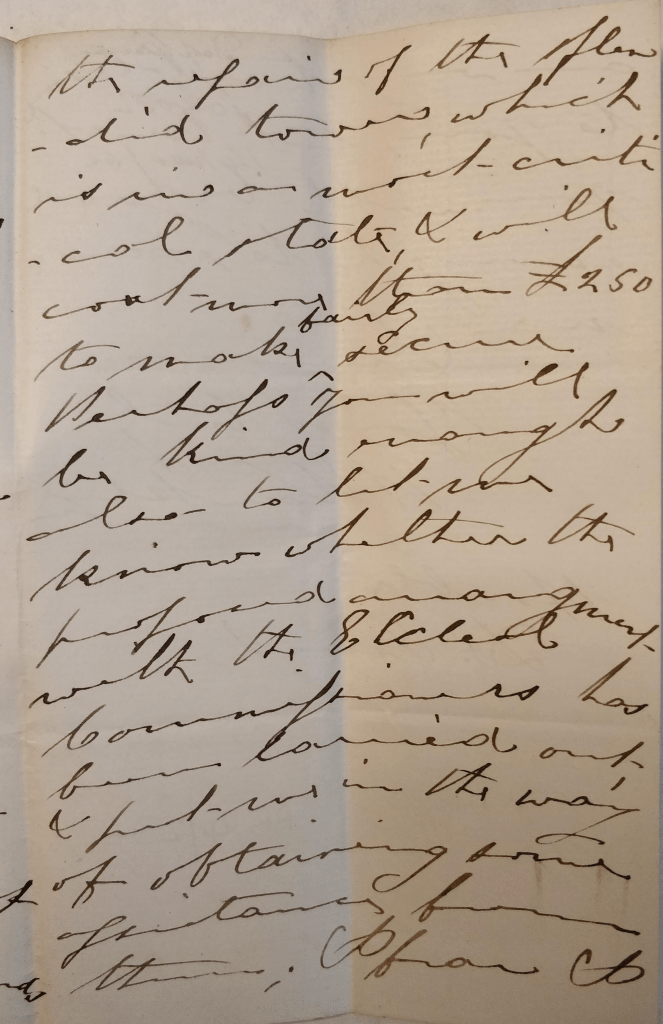 the repair of the splen
-did tower, which
is in a most criti
-cal state, & will
cost more than £250
fairly
to make ^ secure
Perhaps you will
be kind enough
also to let me
know whether the
proposed arrangment
with the Eccleal
Commissioners has
been carried out,
& put me in the way
of obtaining some
assistance from
them;